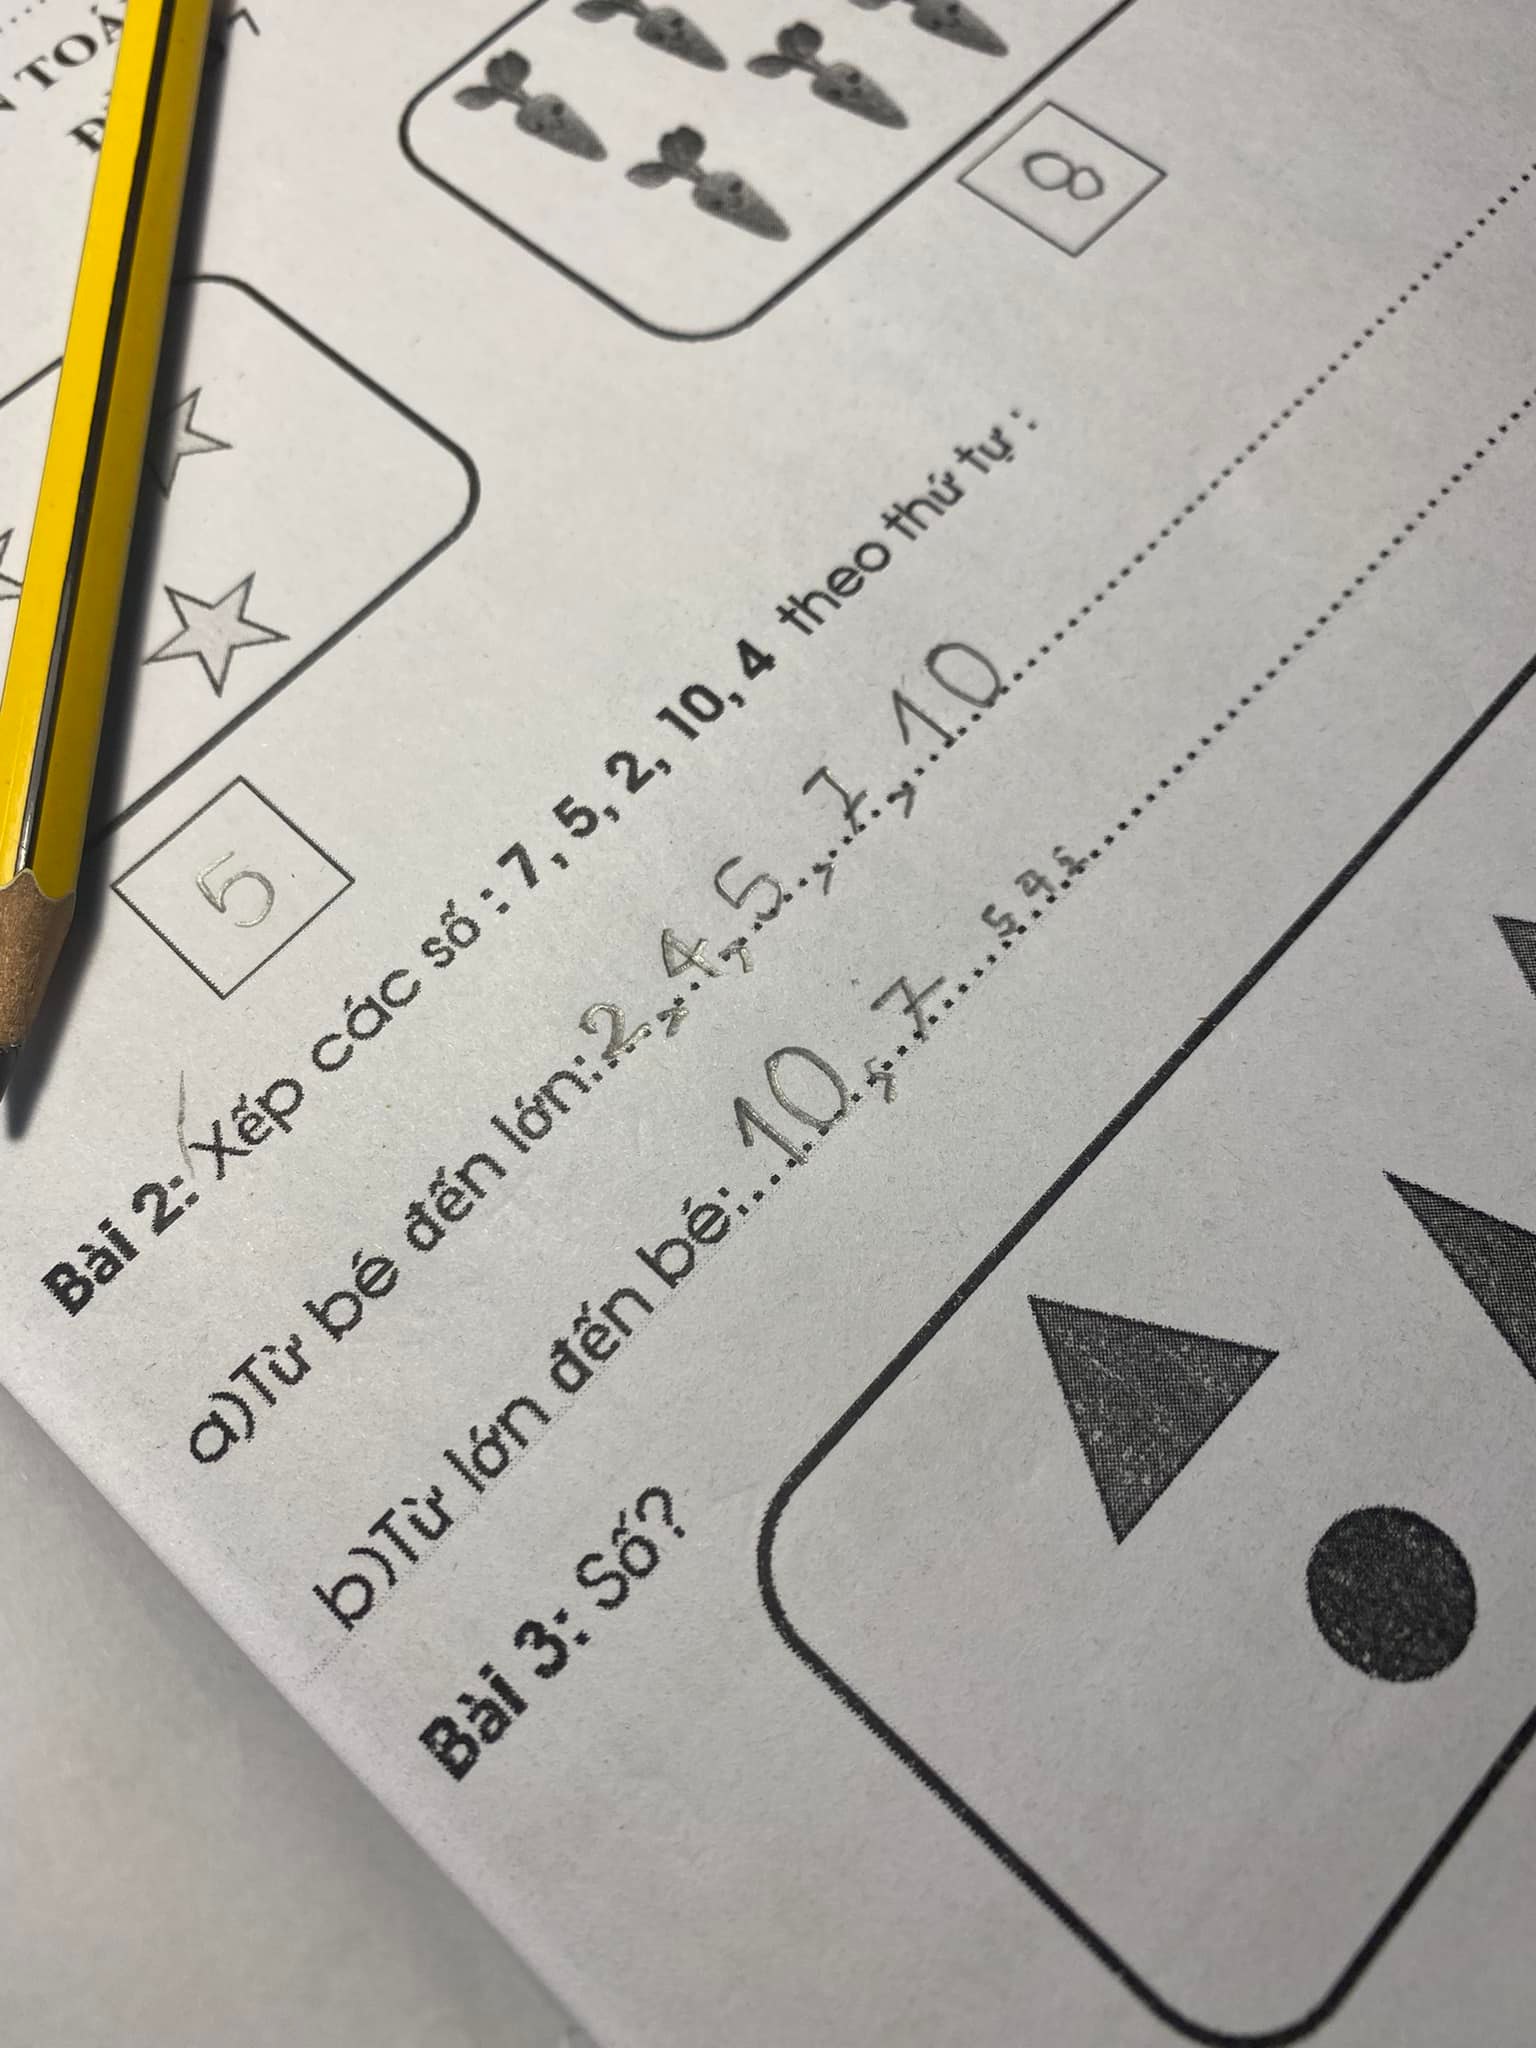 N TOÁ
8
5
Bài 2: Xếp các số : 7, 5, 2, 10, 4 theo thứ tự :
a)Từ bé đến lớn: 2, 4, 5, 7, 10
b)Từ lớn đến bé: 10, 7 5 4 2
Bài 3: Số?